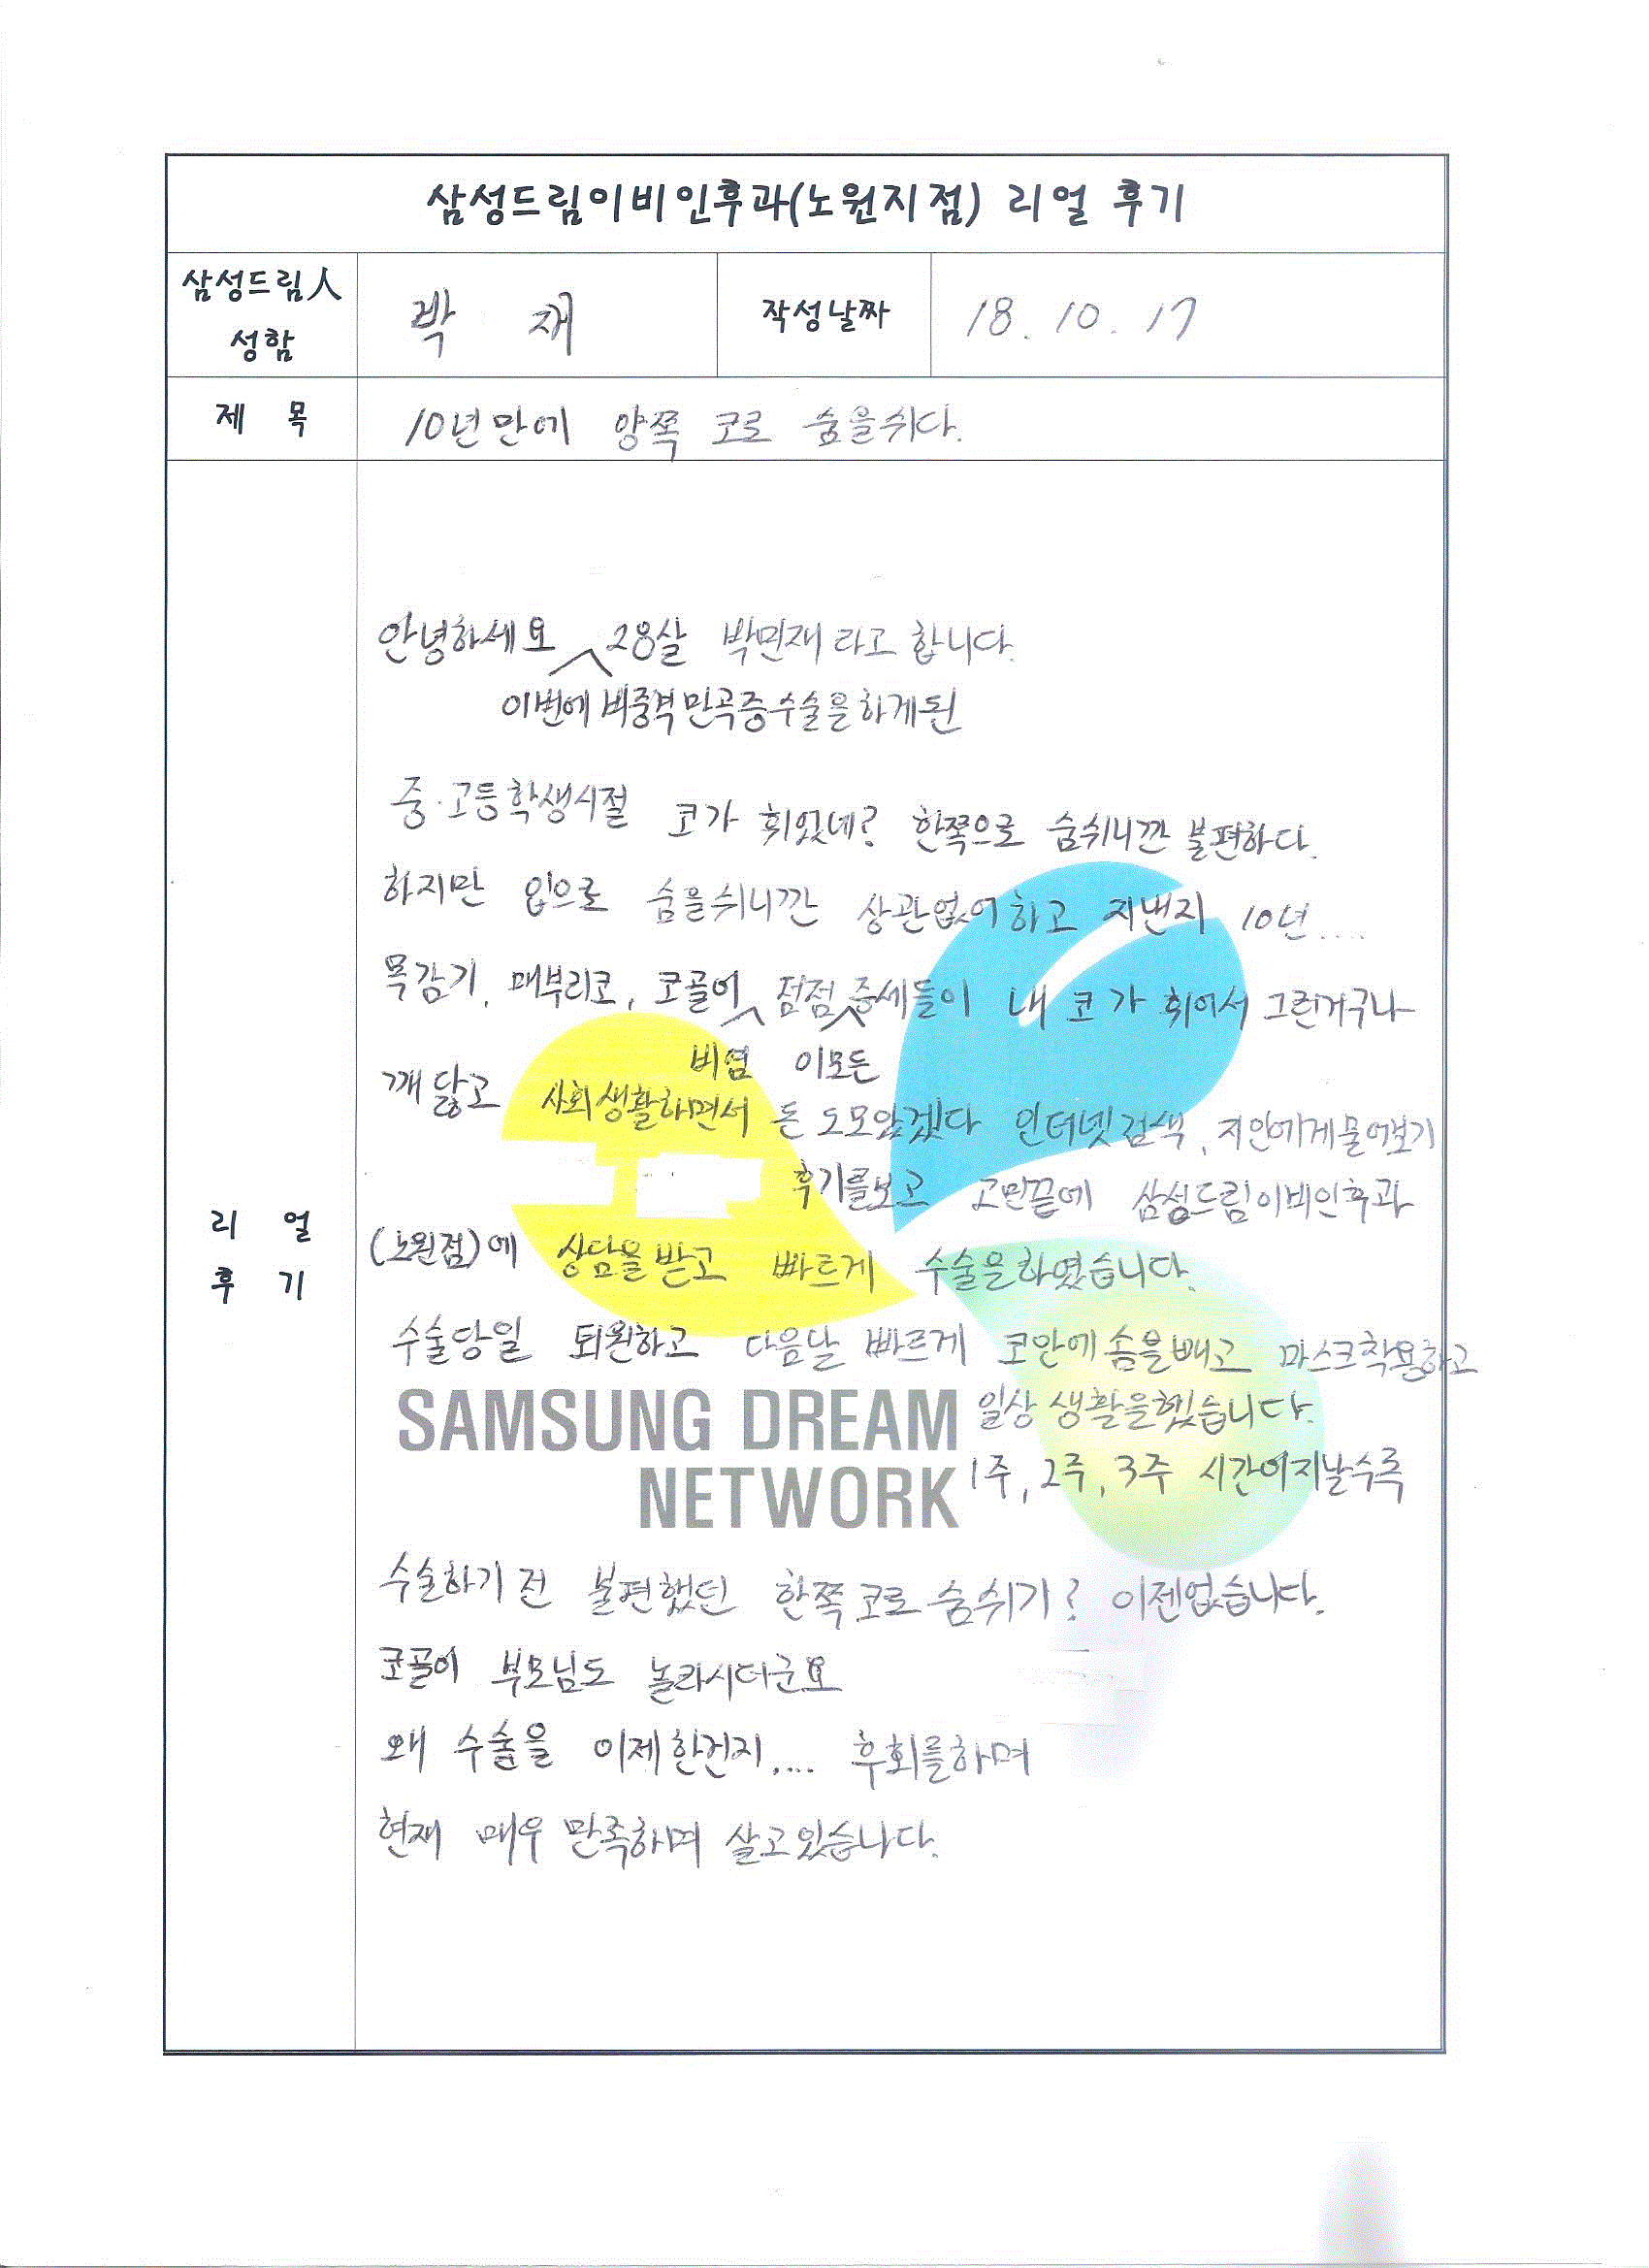 삼성드림이비인후과(노원지점) 리얼 후기
삼성드림人
성함
박 재
작성날짜
18. 10. 17
제 목
10년만에 양쪽 코로 숨을쉬다.
리 얼
후 기
안녕하세요 28살 박민재라고 합니다.
이번에 비중격만곡증수술을하게된
중·고등학생시절 코가 휘었네? 한쪽으로 숨쉬니깐 불편하다.
하지만 입으로 숨을쉬니깐 상관없어하고 지낸지 10년....
목감기, 매부리코, 코골이 점점 증세들이 내 코가 휘어서 그런거구나
비염 이모든
깨닳고 사회생활하면서 돈도모았겠다 인터넷검색, 지인에게물어보기
후기를보고 고민끝에 삼성드림이비인후과
(노원점)에 상담을받고 빠르게 수술을하였습니다.
수술당일 퇴원하고 다음날 빠르게 코안에솜을빼고 마스크착용하고
일상생활을했습니다.
SAMSUNG DREAM
NETWORK
1주, 2주, 3주 시간이지날수록
수술하기전 불편했던 한쪽코로숨쉬기? 이젠없습니다.
코골이 부모님도 놀라시더군요
왜 수술을 이제한건지.... 후회를하며
현재 매우 만족하며 살고있습니다.